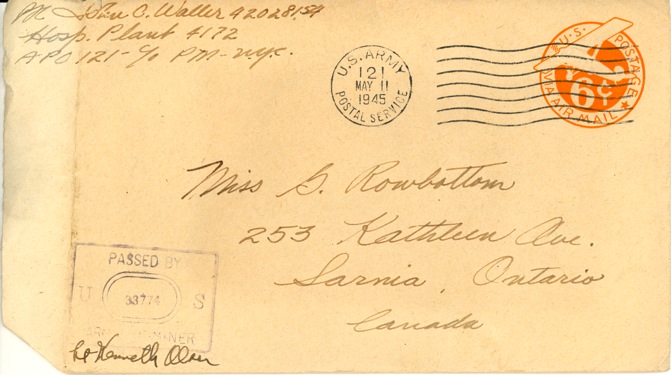 John C. Waller 42028154
Hosp. Plant 4172
APO 121 - c/o PM - N.Y.C.
U.S. ARMY
121
MAY 11
1945
POSTAL SERVICE
U.S. POSTAGE
6¢
VIA AIR MAIL
Miss G. Rowbottom
253 Kathleen Ave.
Sarnia, Ontario
Canada
PASSED BY
U 33774 S
Lt Kenneth Olsen